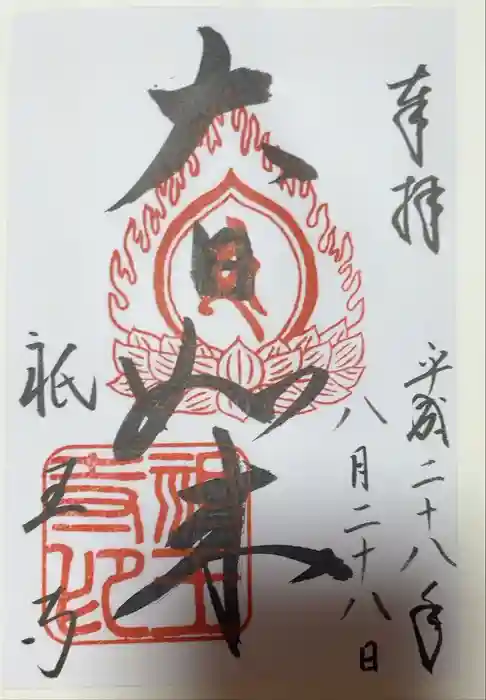 奉拝
平成二十八年
八月二十八日
大日如来
祇王寺
祇王
寺印